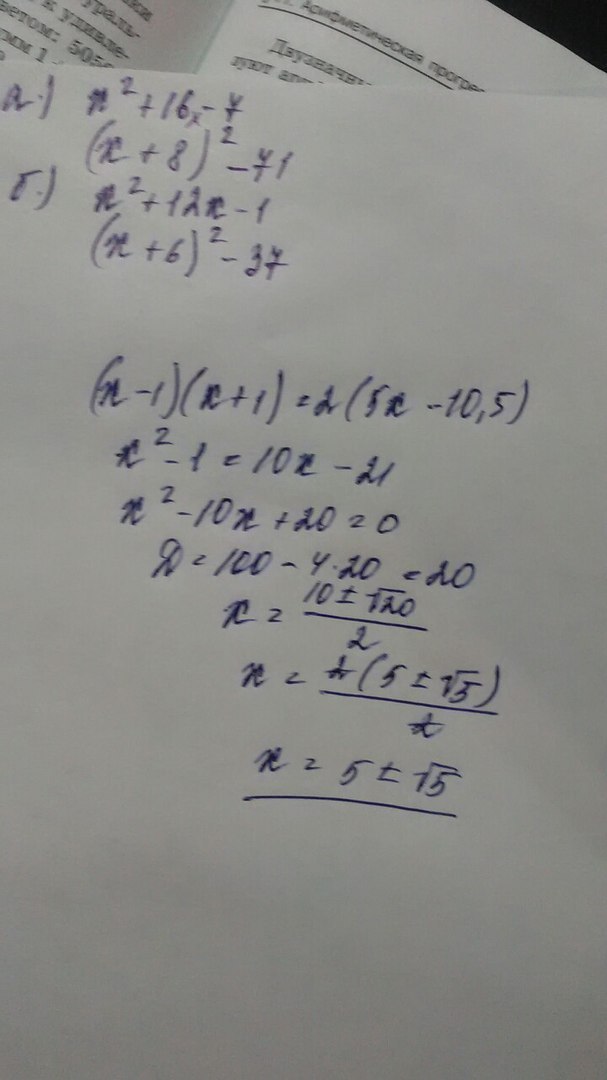 Арифметическая прогрес
Двузначн
а.) x² + 16x - 7
(x + 8)² - 71
б.) x² + 12x - 1
(x + 6)² - 37
(x - 1)(x + 1) = 2(5x - 10,5)
x² - 1 = 10x - 21
x² - 10x + 20 = 0
D = 100 - 4·20 = 20
x = (10 ± √20)/2
x = 2(5 ± √5)/2
x = 5 ± √5